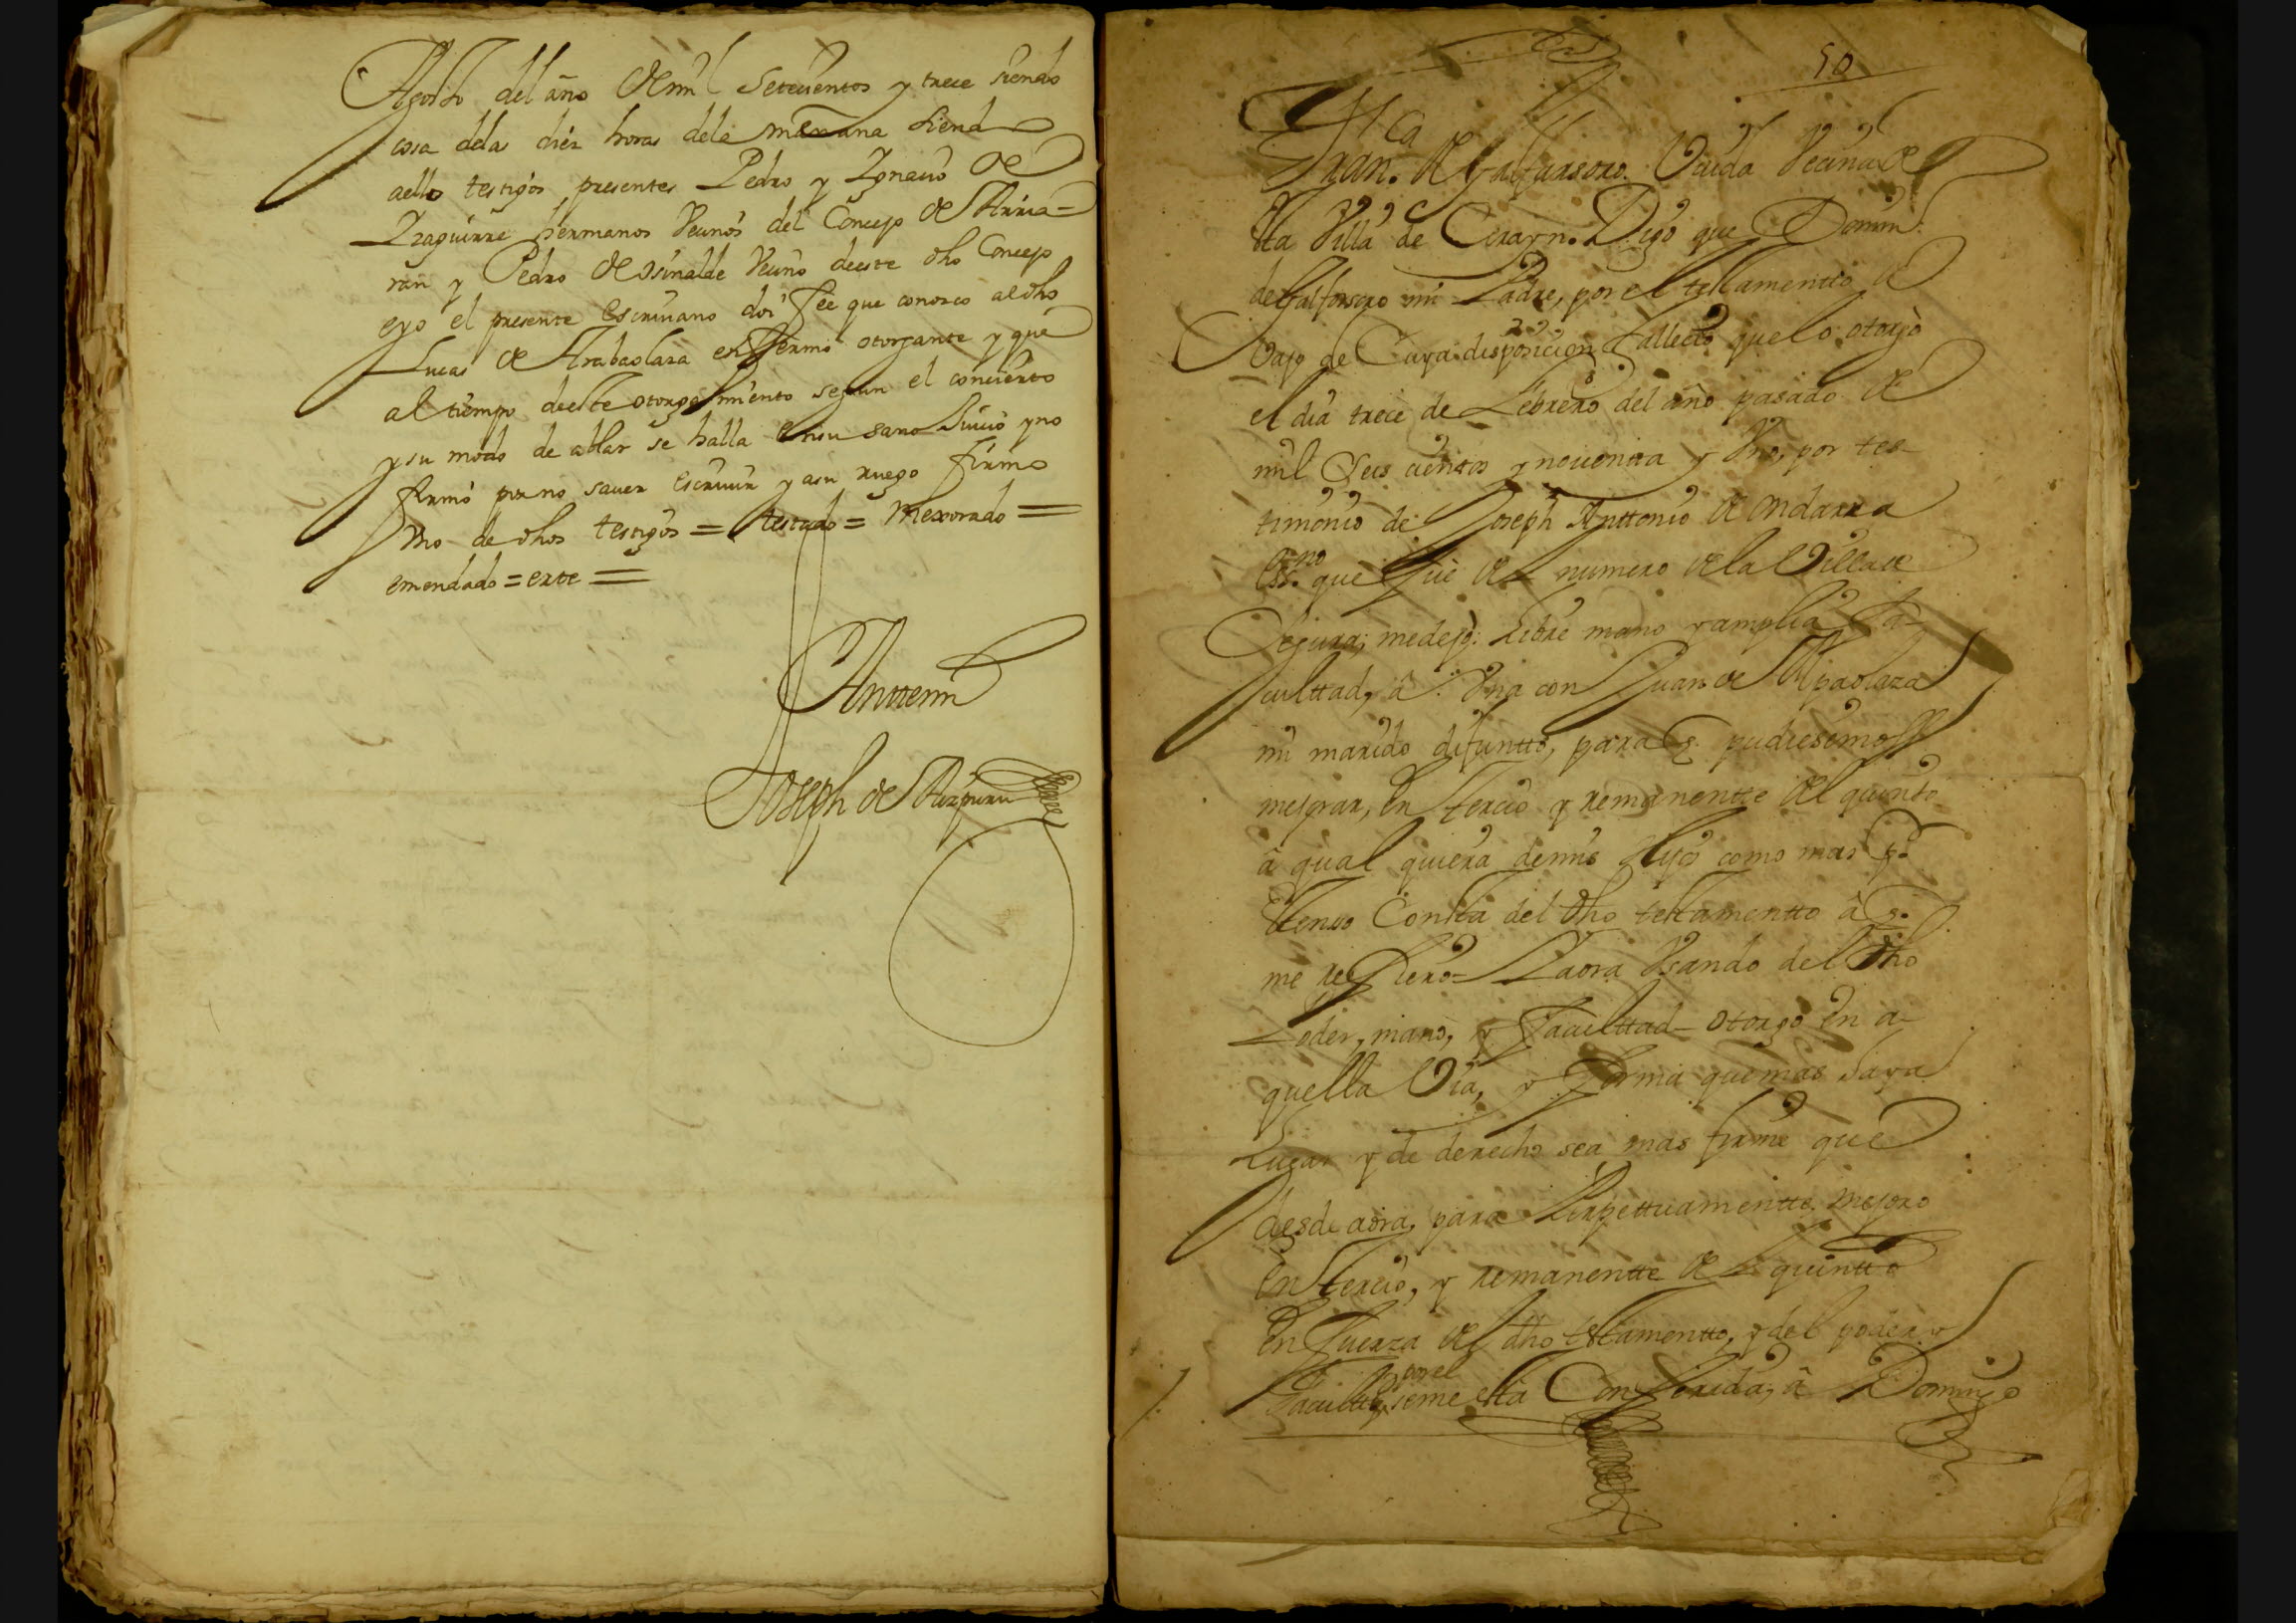 Agosto del año de mil Setecientos y trece siendo
cosa delas diez horas dela mañana siendo
aello testigos presentes Pedro y Ygnacio de
Yzaguirre hermanos Vecinos del Concejo de Arria=
ran y Pedro de Osinalde Vecino deeste dho Concejo
eyo el presente escrivano doi fee que conozco al dho
Lucas de Arabaolaza enfermo otorgante y que
al tiempo deeste otorgamiento segun el concierto
y su modo de ablar se halla en su sano Juicio y no
firmó por no saver escrivir y asu ruego firmo
Uno de dhos testigos = testado = mexorado =
emendado = exte =
Anttemi
Joseph de Aizpuru
50
Fran.ca de Galfarsoro Viuda Vecina de
esta Villa de Cerayn. Digo que Domin.
de Galfarsoro mi Padre, por el testamentto de
Vajo de Cuya disposicion fallecio que lo otorgò
el dia trece de Febrero del año pasado de
mil Seis cientos y noventta y Uno, por tes-
timonio de Joseph Anttonio de Ondarra
Ess.no que fue del numero de la Villa de
Segura, me dejò libre mano y amplia fa-
culttad, â Una con Juan de Apaolaza
mi marido difuntto, para q. pudiesemos
mejorar, en tercio y remanentte del quintto
â qual quiera de mis Hijos como mas p.r
estenso Consta del dho testamentto â q.
me refiero- Y aora Usando del dho
Poder, mano, y faculttad- otorgo en a-
quella Via, y forma que mas aya
Lugar y de derecho sea mas firme que
desde aora, para Perpettuamentte mejoro
en tercio, y remanentte del quintto
en fuerza del dho testamentto, y del poder y
facultad q. por el se me està Conferida, â Domingo